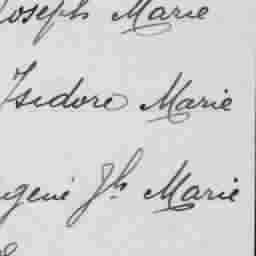 Joseph Marie
Isidore Marie
ugène Jh Marie